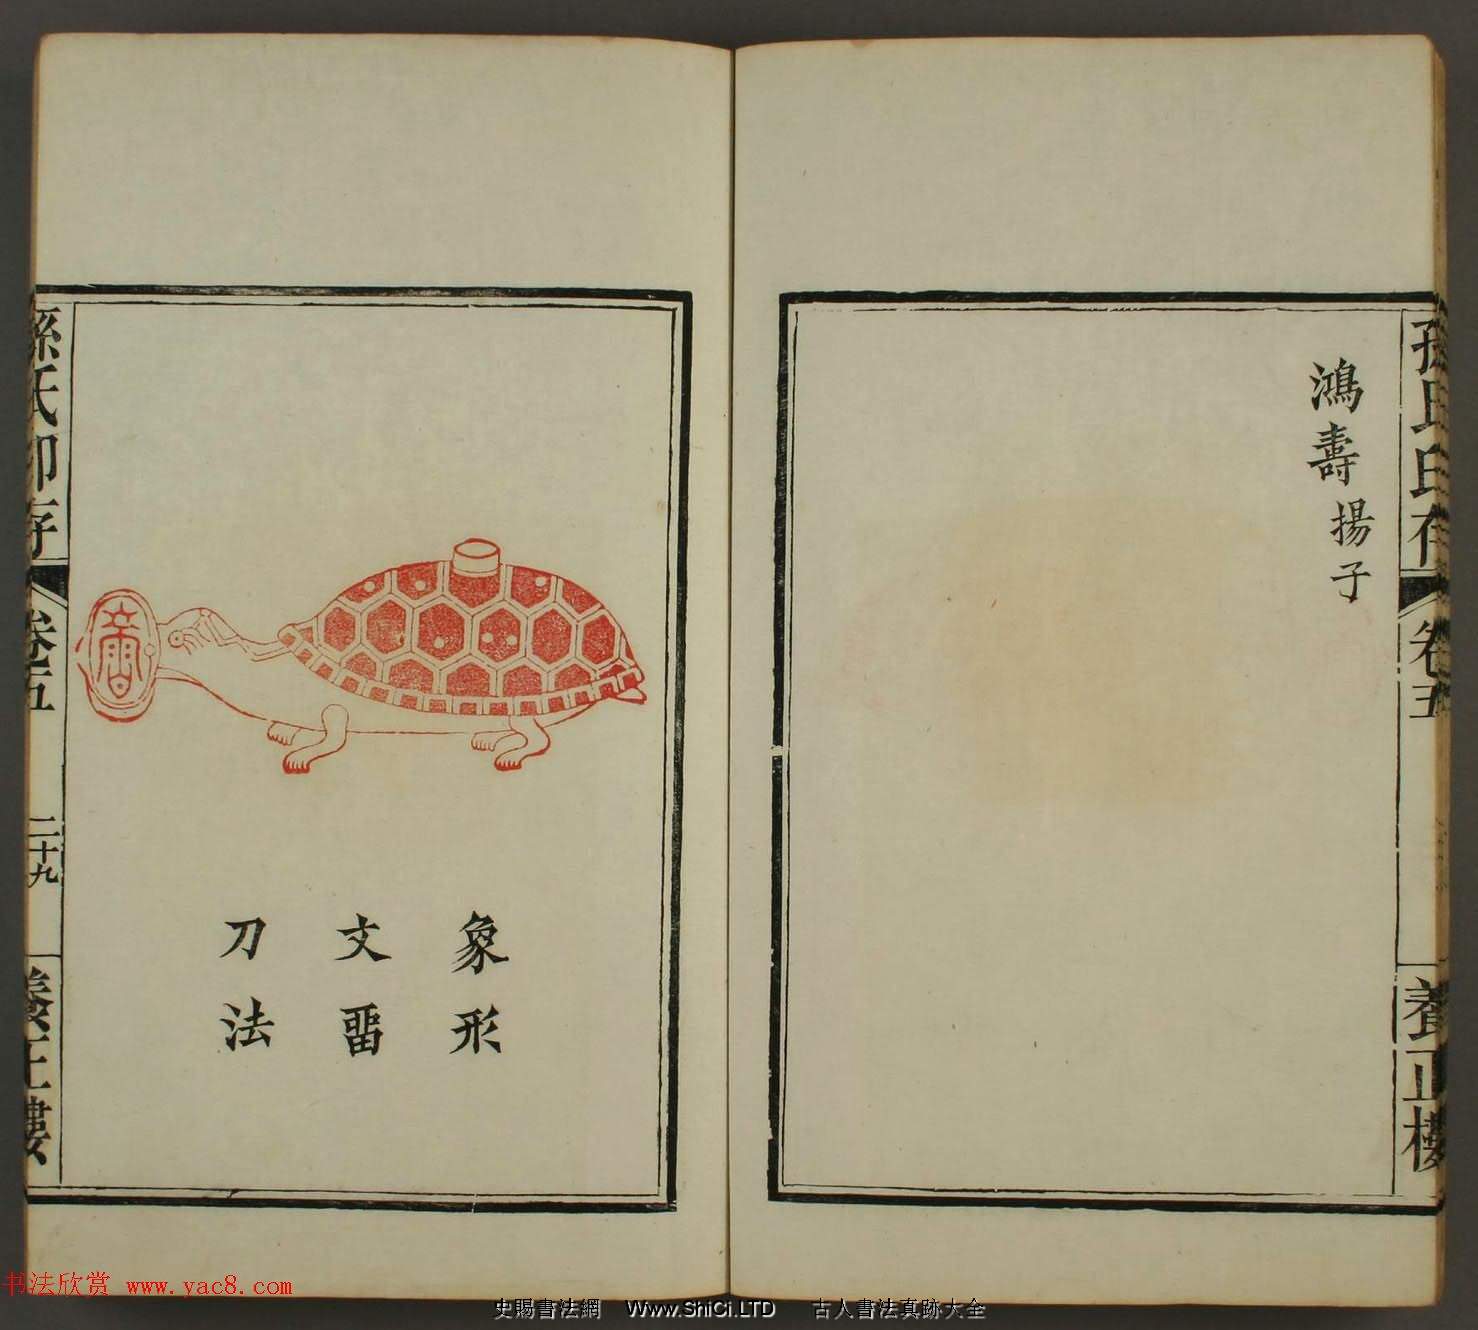 孫氏印存
卷五
養正樓
鴻壽揚子
象形
文畱
刀法
孫氏印存
卷五
二十九
養正樓
书法欣赏 www.yac8.com
史賜書法網 Www.ShiCi.LTD 古人書法真跡大全